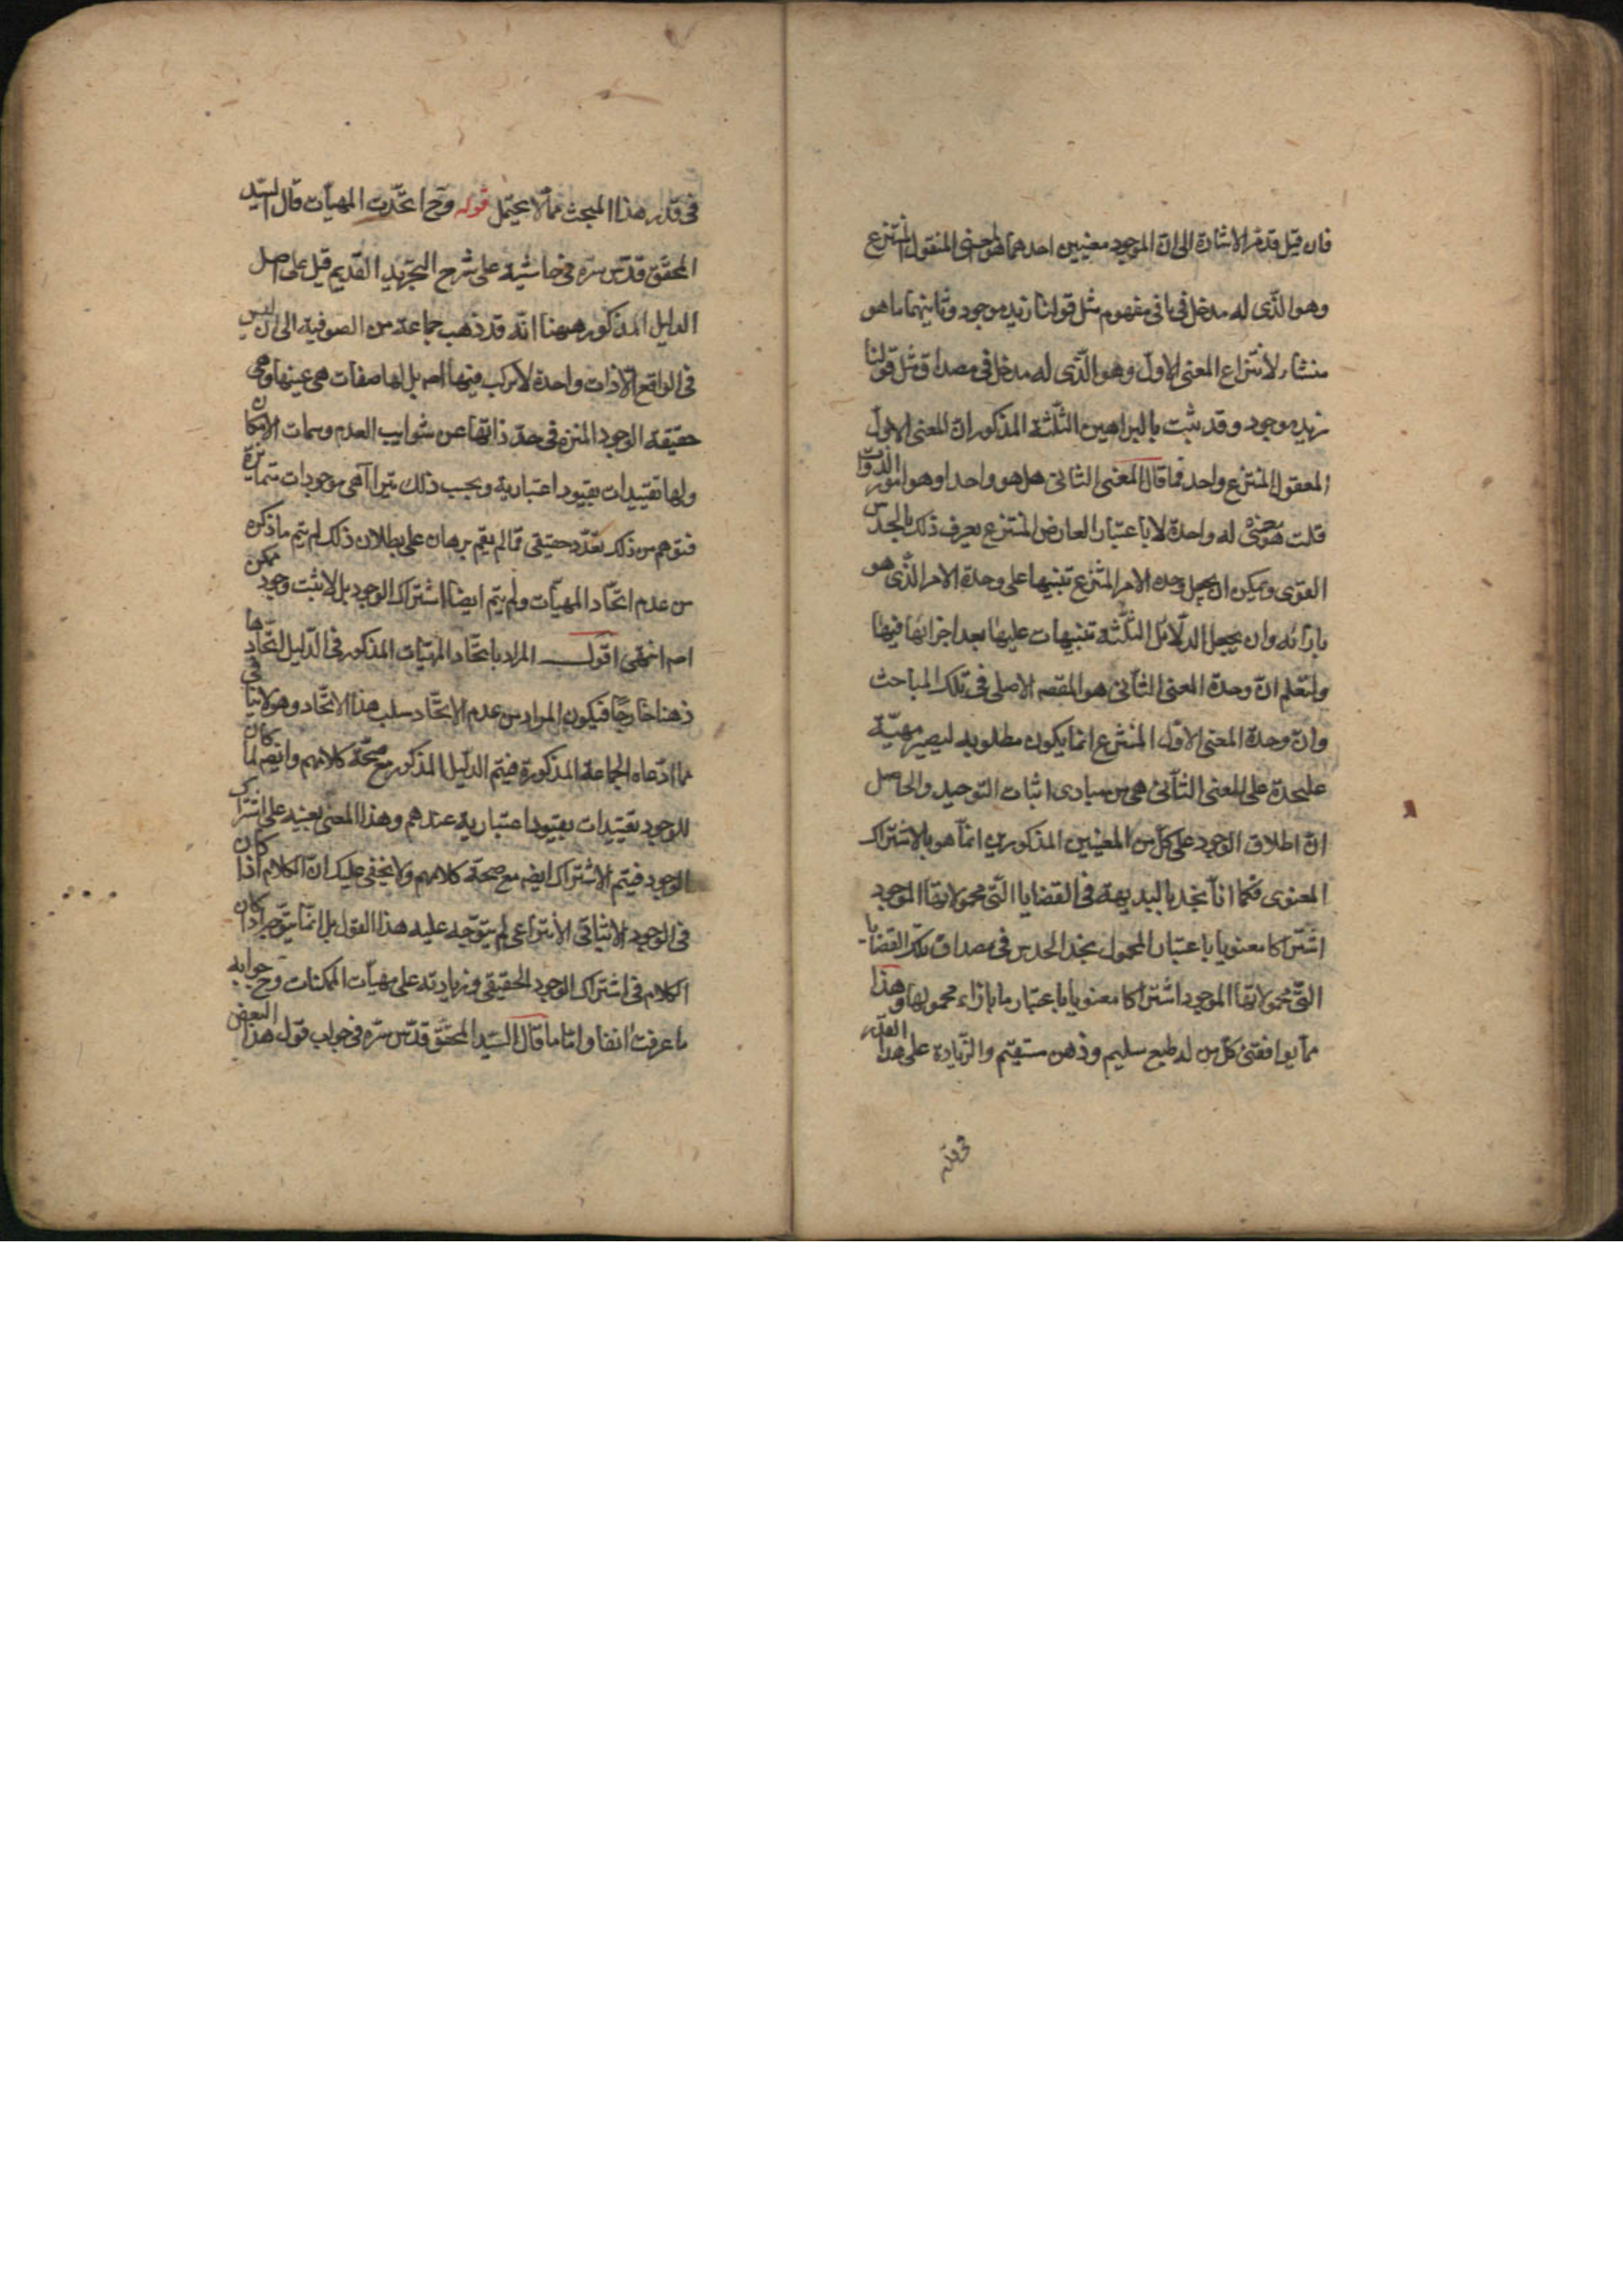 فان قيل قد مر الاشارة الى ان الموجود معنيين احدهما هو المعنى المنقول المنتزع
وهو الذى له مدخل فى مفهوم مثل قولنا زيد موجود وثانيهما ما هو
منشاء لانتزاع المعنى الاول وهو الذى له مدخل فى مصداق مثل قولنا
زيد موجود وقد ثبت بالبراهين الثلثة المذكور ان المعنى الاول
المعقول المنتزع واحد فما قال المعنى الثانى هل هو واحد او هو امور
قلت هو معنى له واحدة لا باعتبار العارض المنتزع يعرف ذلك بالحدس
القوى ويمكن ان يجعل وحده الامر المنتزع تنبيها على وحدة الامر الذى هو
بازائه وان يجعل الدلائل الثلثة تنبيهات عليها بعد اجرائها فيها
ولتعلم ان وحدة المعنى الثانى هو المقصد الاصلى فى تلك المباحث
وان وحدة المعنى الاول المنتزع انما يكون مطلوبه ليصير مهيّة
عليحدة على المعنى الثانى هى من مبادى اثبات التوحيد والحاصل
ان اطلاق الوجود على كل من المعنيين المذكورين انما هو بالاشتراك
المعنوى فكما انا نجد بالبديهة فى القضايا التى محمولاتها الموجود
اشتراكا معنويا باعتبار المحمول نجد الحدس فى مصداق تلك القضايا
التى محمولاتها الموجود اشتراكا معنويا باعتبار ما بازاء محمولها وهذا
مما يوافقنى كل من له طبع سليم وذهن مستقيم والزيادة على هذا القدر
فى قدر
فى قدر هذا المبحث مما لا يحتمل قوله وح اتحدت المهيات قال السيد
المحقق قدس سره فى حاشية على شرح التجريد القديم قيل على اصل
الدليل المذكور ههنا انه قد ذهب جماعة من الصوفية الى ان ليس
فى الواقع الا ذات واحدة لا تركب فيها اصم بل لها صفات هى عينها وهى
حقيقة الوجود المنزه فى حد ذاتها عن شوايب العدم وسمات الامكان
ولها تقييدات بقيود اعتبارية وبحسب ذلك يتراآى موجودات متمايزة
فتوهم من ذلك تعدد حقيقى فما لم يقم برهان على بطلان ذلك لم يتم ما ذكره
من عدم اتحاد المهيات ولم يتم ايضا اشتراك الوجود بل لا ثبت وجود ممكن
اصم انتهى اقول المراد باتحاد المهيات المذكور فى الدليل اتحادها
ذهنا خارجا فيكون المراد من عدم الاتحاد سلب هذا الاتحاد وهو لا ينافى
ما ادعاه الجماعة المذكورة فيتم الدليل المذكور مع صحة كلامهم وايضم لما كان
للوجود تقييدات بقيود اعتبارية عندهم وهذا المعنى بعينه على اشتراك
الوجود فيتم الاشتراك ايضم مع صحة كلامهم ولا يخفى عليك ان الكلام اذا كان
فى الوجود الانتزاعى لم يتوجه عليه هذا القول بل انما يتوجه اذا كان
الكلام فى اشتراك الوجود الحقيقى وزيادته على مهيات الممكنات وح جوابه
ما عرفت انفا واما ما قال السيد المحقق قدس سره فى جواب قول هذا البعض